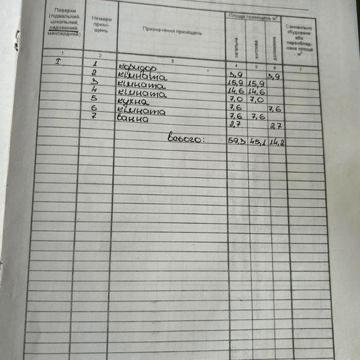 Поверхи
(підвальний,
цокольний,
надземний,
мансардний)
Номери
примі-
щень
Призначення приміщень
Площа приміщень м²
загальна
житлова
допоміжна
Самовільно
збудована
або
площа
м²
1 2 3 4 5 6 7
1 коридор
2 кімната 5,9 5,9
3 кімната 15,9 15,9
4 кімната 14,6 14,6
5 кухня 7,0 7,0
6 кімната 7,6 7,6
7 ванна 7,6 7,6
2,7 2,7
всього: 59,3 45,1 14,2